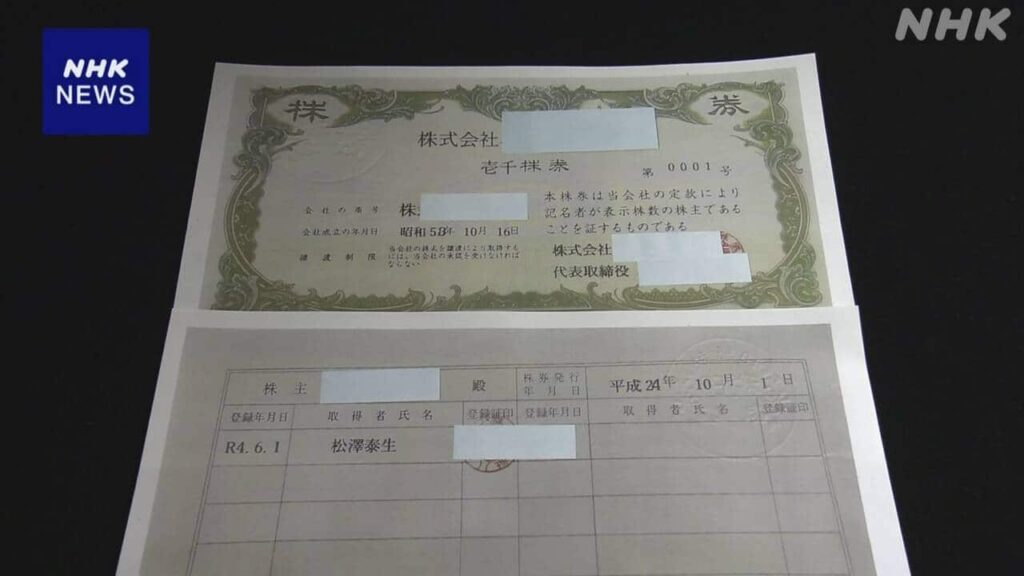 NHK
NHK
NEWS
株 券
株式会社
壱千株券
第 0001 号
会社の商号 株
会社成立の年月日 昭和58年10月16日
譲渡制限
当会社の株式を譲渡により取得するには、当会社の承認を受けなければならない
本株券は当会社の定款により
記名者が表示株数の株主である
ことを証するものである
株式会社
代表取締役
株主 殿 株券発行年月日 平成24年10月1日
登録年月日 取得者氏名 登録証印 登録年月日 取得者氏名 登録証印
R4.6.1 松澤泰生